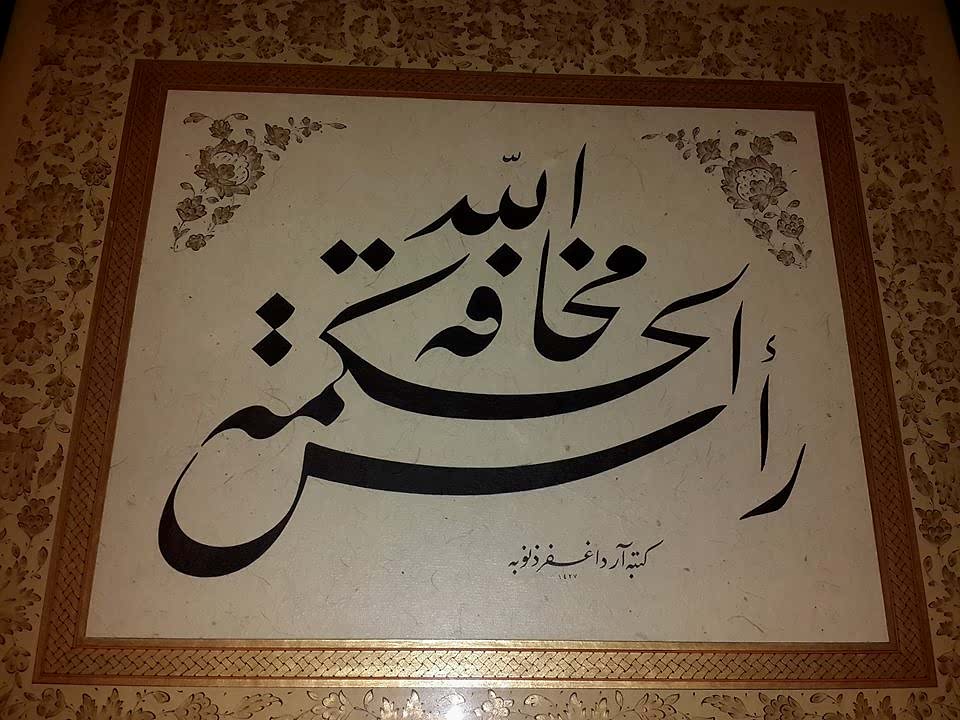 رأس الحكمة مخافة الله
كتبه آرداغفر ذنوبه
١٤٢٧